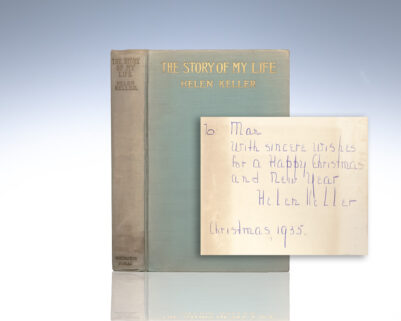 THE STORY
OF MY
LIFE
HELEN
KELLER
THE STORY OF MY LIFE
HELEN KELLER
To Max
With sincere wishes
for a Happy Christmas
and New Year
Helen Keller
Christmas 1935.